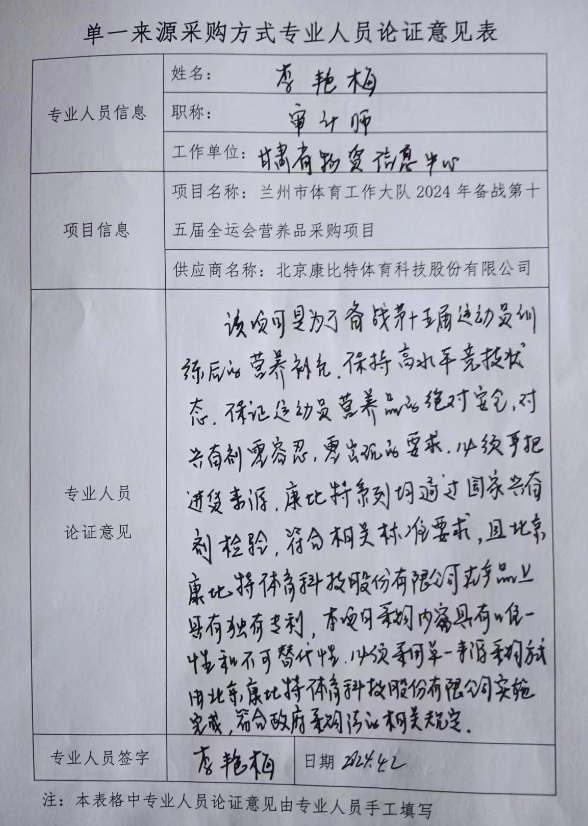 单一来源采购方式专业人员论证意见表
专业人员信息
姓名: 李艳梅
职称: 审计师
工作单位: 甘肃省物资信息中心
项目信息
项目名称: 兰州市体育工作大队 2024 年备战第十
五届全运会营养品采购项目
供应商名称: 北京康比特体育科技股份有限公司
专业人员
论证意见
该项目是为了备战第十五届运动员训
练后的营养补充、保持高水平竞技状
态、保证运动员营养品的绝对安全,对
兴奋剂零容忍,零出现的要求,必须严把
进货来源,康比特系列均通过国家兴奋
剂检验,符合相关标准要求,且北京
康比特体育科技股份有限公司在产品上
具有独有专利,本项目采购内容具有唯一
性和不可替代性,必须采用单一来源采购方式
由北京康比特体育科技股份有限公司实施
完成,符合政府采购法的相关规定.
专业人员签字
李艳梅
日期 2024.4.2
注: 本表格中专业人员论证意见由专业人员手工填写